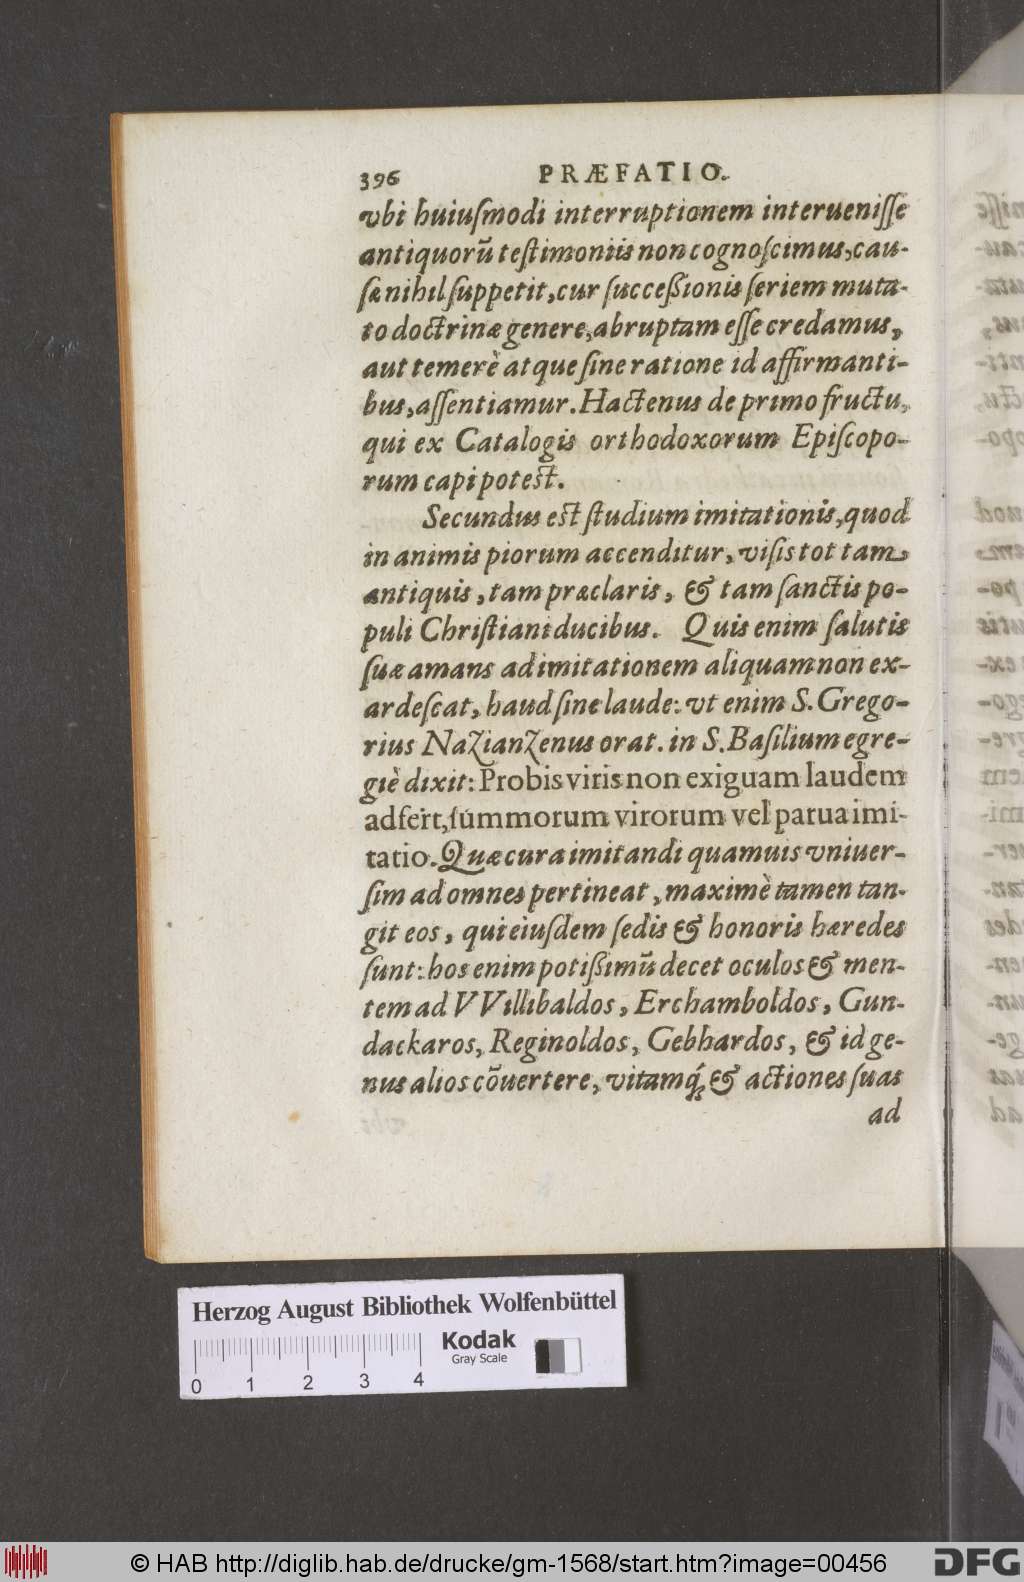 396 PRÆFATIO.
vbi huiuſmodi interruptionem interueniſſe
antiquorū teſtimoniis non cognoſcimus, cau-
ſæ nihil ſuppetit, cur ſucceßionis ſeriem muta-
to doctrinæ genere, abruptam eſſe credamus,
aut temerè atque ſine ratione id affirmanti-
bus, aſſentiamur. Hactenus de primo fructu,
qui ex Catalogis orthodoxorum Epiſcopo-
rum capi potest.
Secundus est ſtudium imitationis, quod
in animis piorum accenditur, viſis tot tam
antiquis, tam præclaris, & tam ſanctis po-
puli Chriſtiani ducibus. Quis enim ſalutis
ſuæ amans ad imitationem aliquam non ex-
ardeſcat, haud ſine laude: vt enim S. Grego-
rius Nazianzenus orat. in S. Baſilium egre-
giè dixit: Probis viris non exiguam laudem
adfert, ſummorum virorum vel parua imi-
tatio. Quæ cura imitandi quamuis vniuer-
ſim ad omnes pertineat, maximè tamen tan-
git eos, qui eiuſdem ſedis & honoris hæredes
ſunt: hos enim potißimū decet oculos & men-
tem ad VVillibaldos, Erchamboldos, Gun-
dackaros, Reginoldos, Gebhardos, & id ge-
nus alios cōuertere, vitamq́; & actiones ſuas
ad
Herzog August Bibliothek Wolfenbüttel
Kodak
Gray Scale
0 1 2 3 4
© HAB http://diglib.hab.de/drucke/gm-1568/start.htm?image=00456
DFG